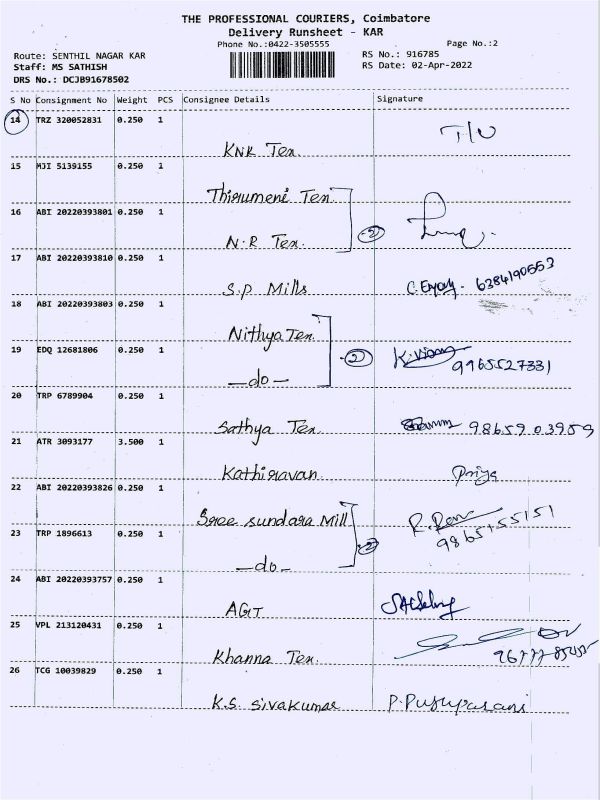 THE PROFESSIONAL COURIERS, Coimbatore
Delivery Runsheet - KAR
Phone No.:0422-3505555
Page No.:2
Route: SENTHIL NAGAR KAR
RS No.: 916785
Staff: MS SATHISH
RS Date: 02-Apr-2022
DRS No.: DCJB91678502
S No Consignment No Weight PCS Consignee Details Signature
14 TRZ 320052831 0.250 1
KNR Tex. T/U
15 MJI 5139155 0.250 1
Thirumeni Tex.
16 ABI 20220393801 0.250 1
-2
N.R Tex.
17 ABI 20220393810 0.250 1
S.P Mills 6384190553
18 ABI 20220393803 0.250 1
Nithya Tex.
19 EDQ 12681806 0.250 1
-2
9965527331
-do-
20 TRP 6789904 0.250 1
Sathya Tex. 9865903959
21 ATR 3093177 3.500 1
Kathiravan Priya
22 ABI 20220393826 0.250 1
Sree sundara Mill
23 TRP 1896613 0.250 1
9865155151
-do-
24 ABI 20220393757 0.250 1
AGT
25 VPL 213120431 0.250 1
Khanna Tex.
26 TCG 10039829 0.250 1
K.S. Sivakumar